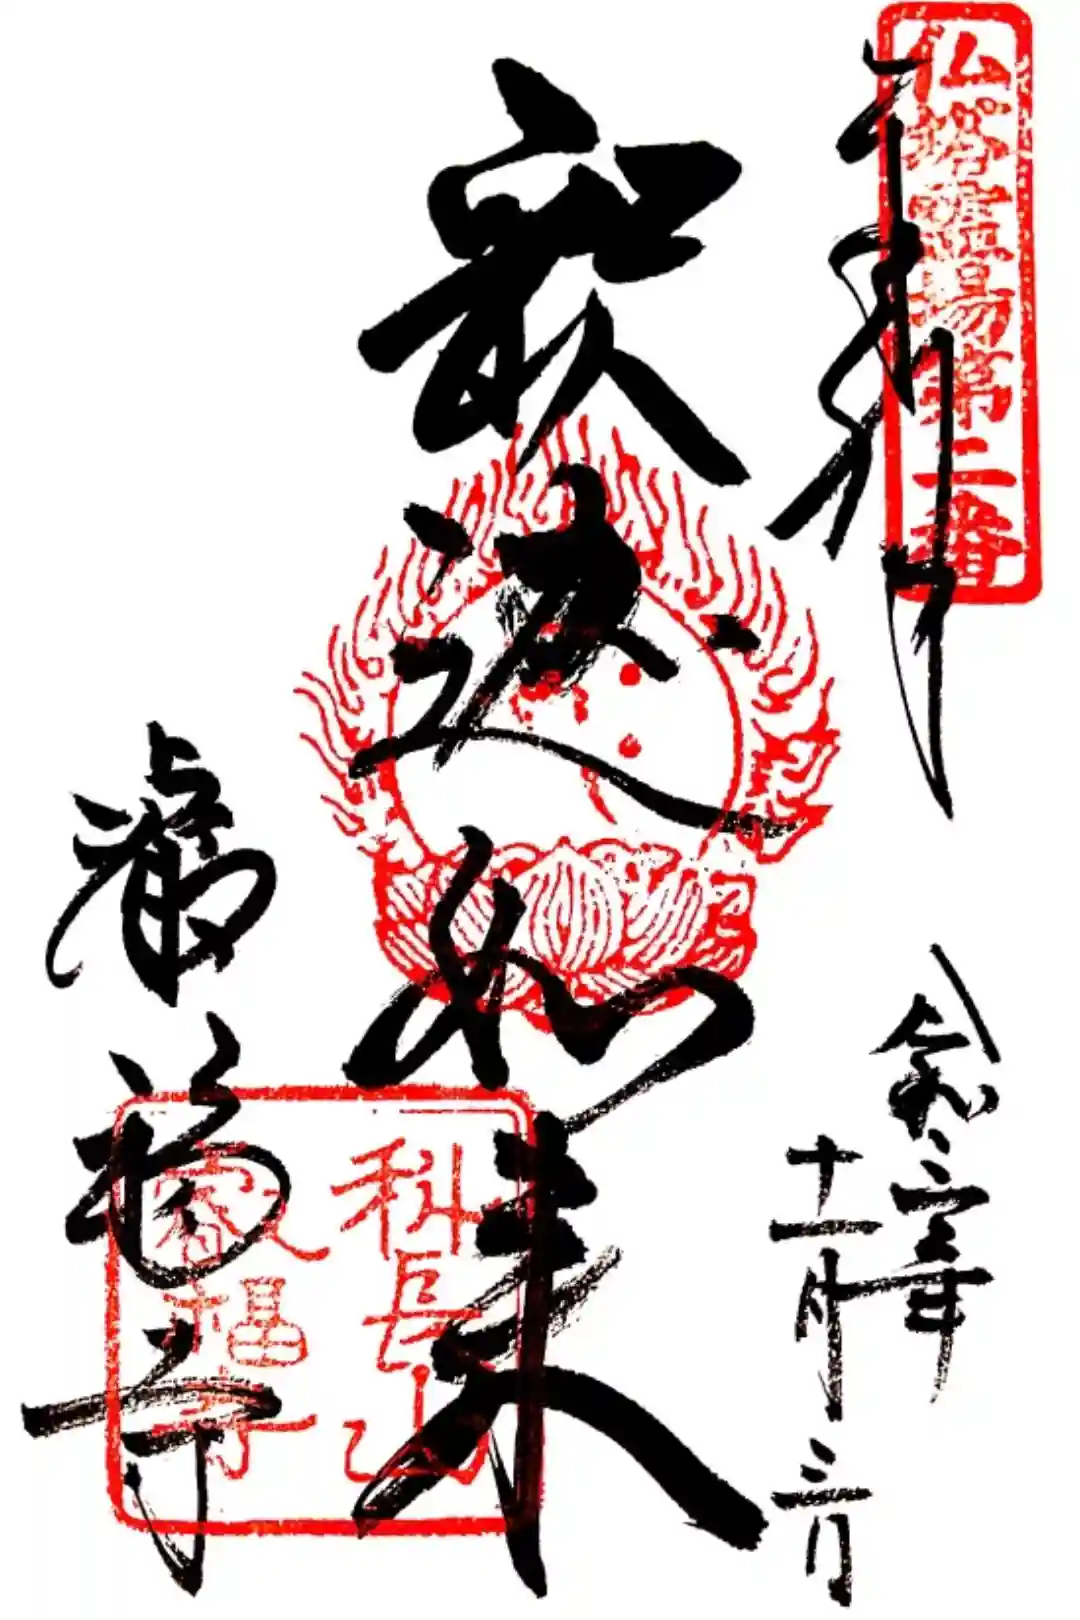 仏塔霊場第二番
奉拝
釈迦如来
令和二年
十一月三日
叡福寺
科長山
叡福寺